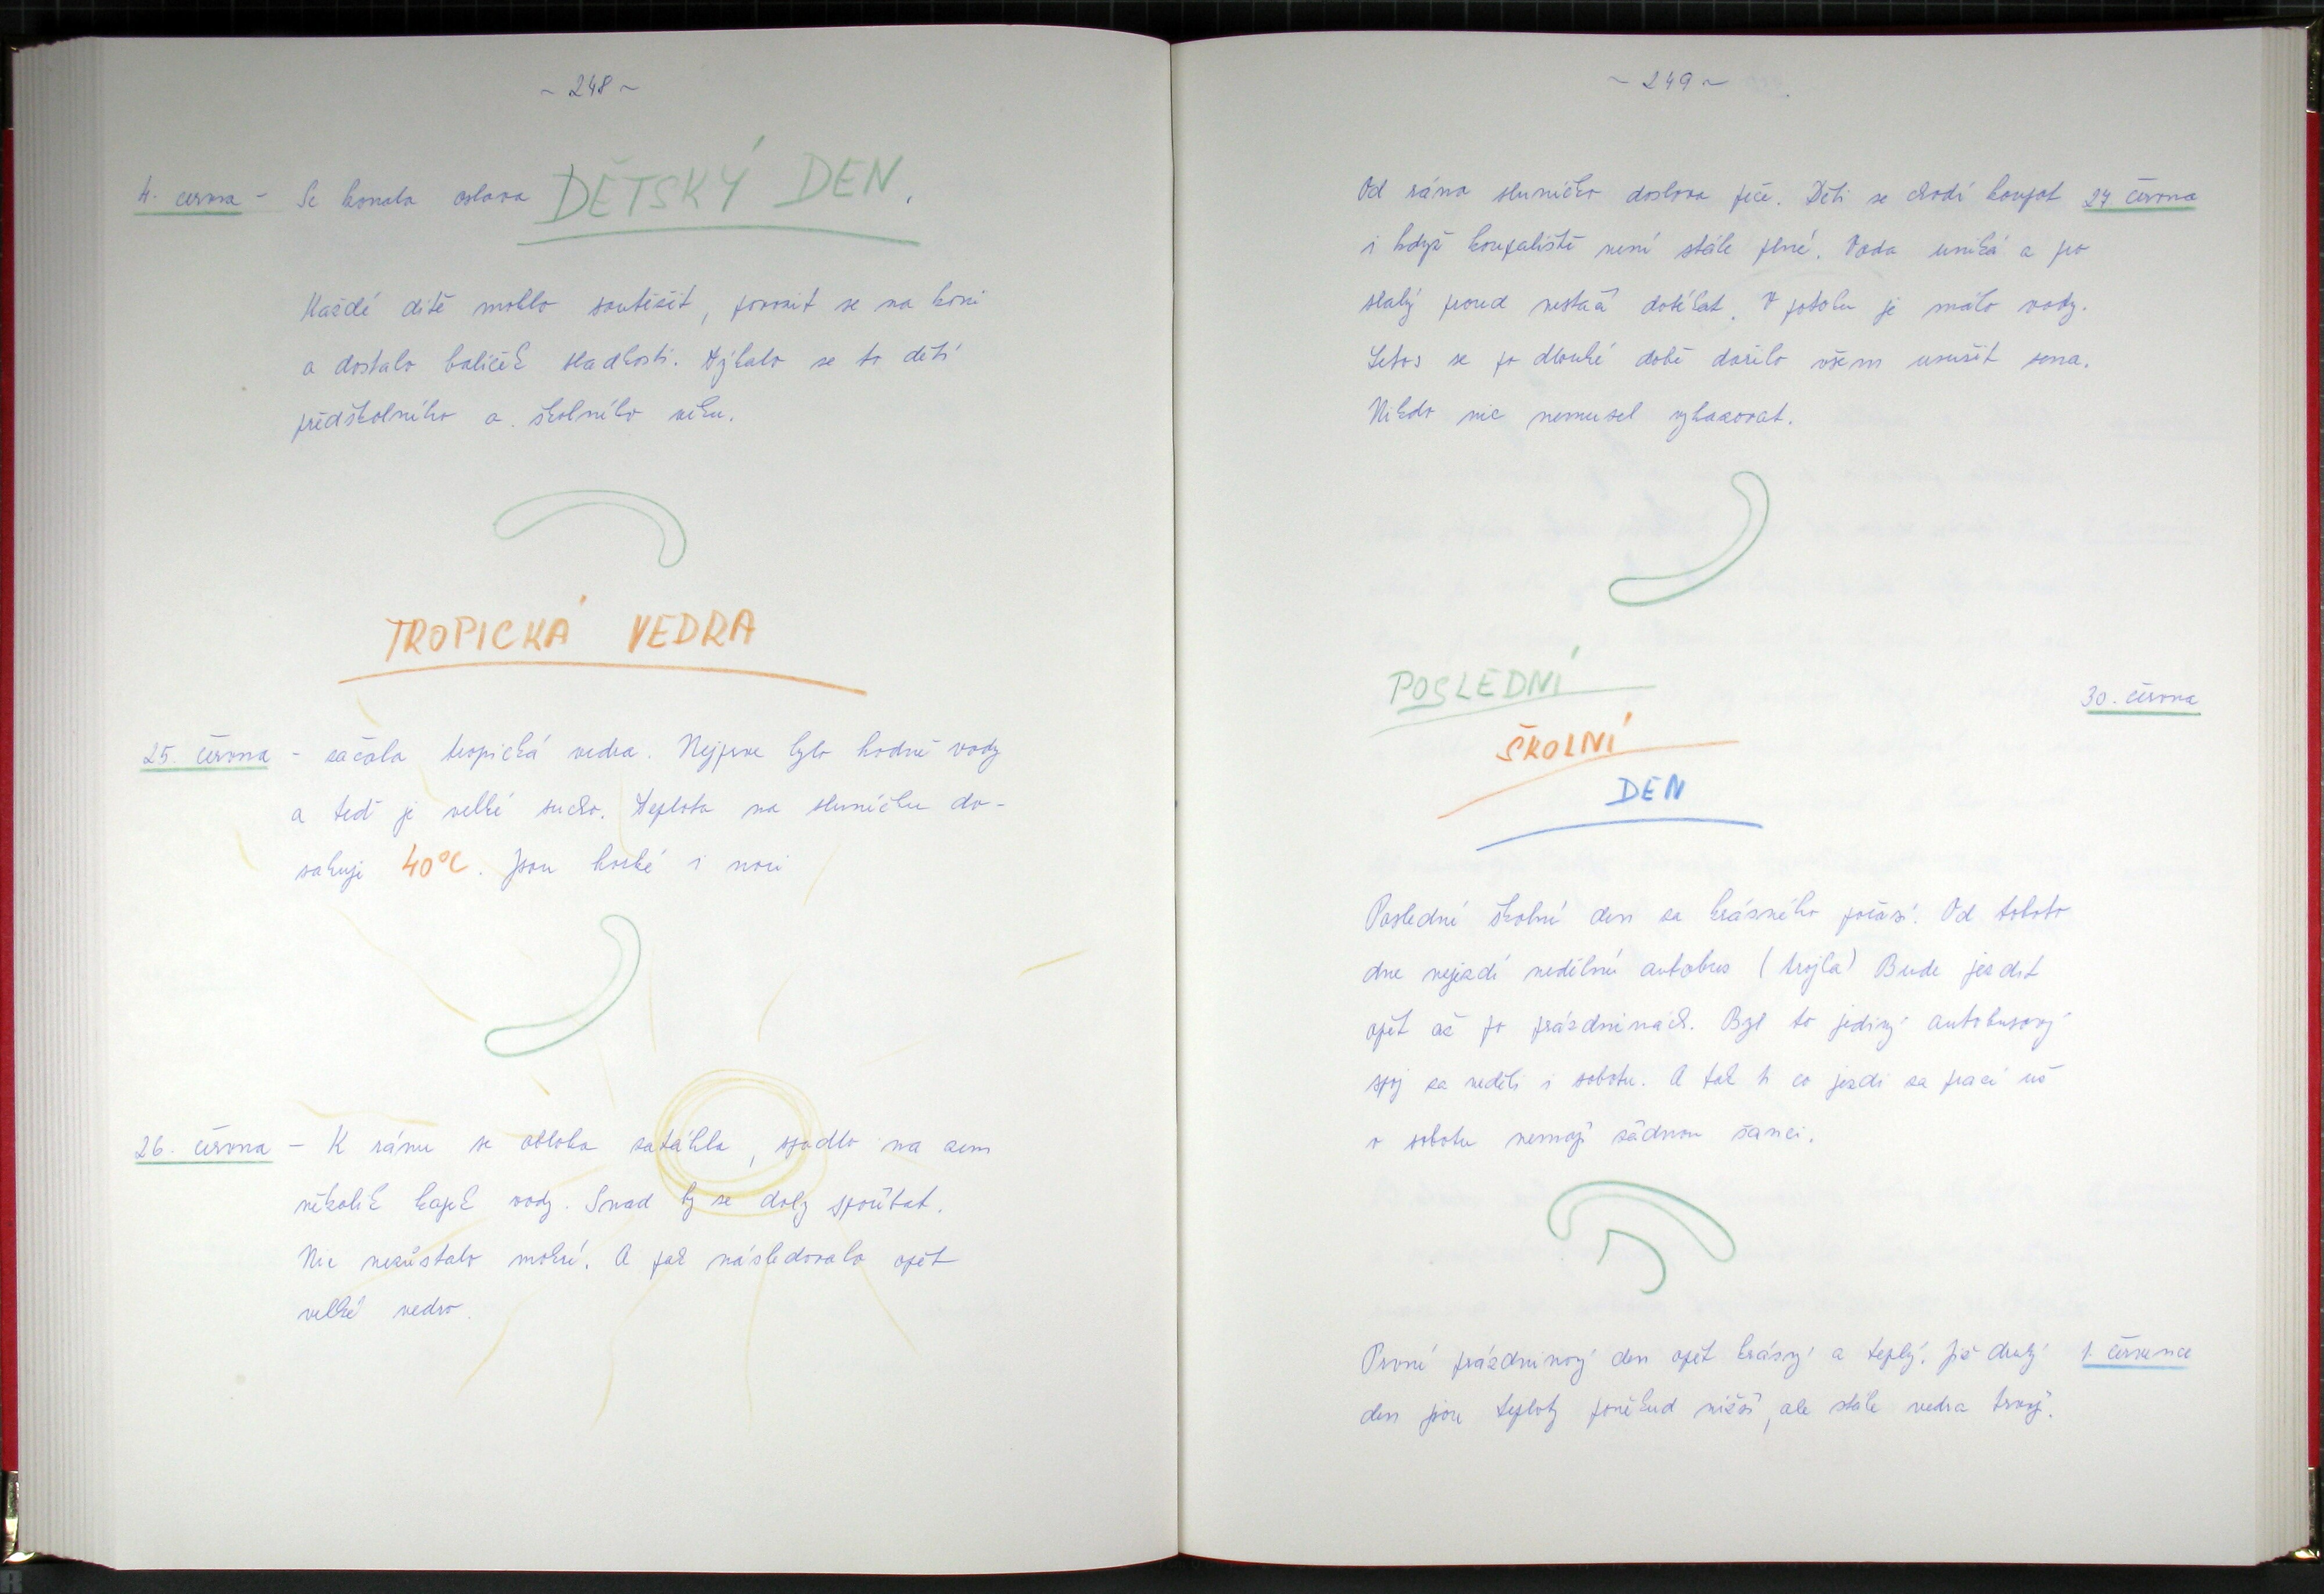 ~ 248 ~
4. června - Se konala oslava DĚTSKÝ DEN.
Každé dítě mohlo soutěžit, povozit se na koni
a dostalo balíček sladkostí. Týkalo se to dětí
předškolního a školního věku.
TROPICKÁ VEDRA
25. června - začala tropická vedra. Nejprve bylo hodně vody
a teď je velké sucho. Teplota na sluníčku do-
sahuje 40°C. Jsou horké i noci
26. června - K ránu se obloha zatáhla, spadlo na zem
několik kapek vody. Snad by se daly spočítat.
Nic nezůstalo mokré. A pak následovalo opět
velké vedro.
~ 249 ~
Od rána sluníčko doslova peče. Děti se chodí koupat 27 června
i když koupaliště není stále plné. Voda uniká a po
slabý proud nestačí dotékat. V potoku je málo vody.
Letos se po dlouhé době dařilo všem usušit sena.
Nikdo nic nemusel vyhazovat.
POSLEDNÍ
30. června
ŠKOLNÍ
DEN
Poslední školní den za krásného počasí. Od tohoto
dne nejezdí nedělní autobus (trojka) Bude jezdit
opět až po prázdninách. Byl to jediný autobusový
spoj za neděli i sobotu. A tak ti co jezdí za prací už
v sobotu nemají žádnou šanci.
První prázdninový den opět krásný a teplý. Již druhý 1. července
den jsou teploty poněkud nižší, ale stále vedra trvají.